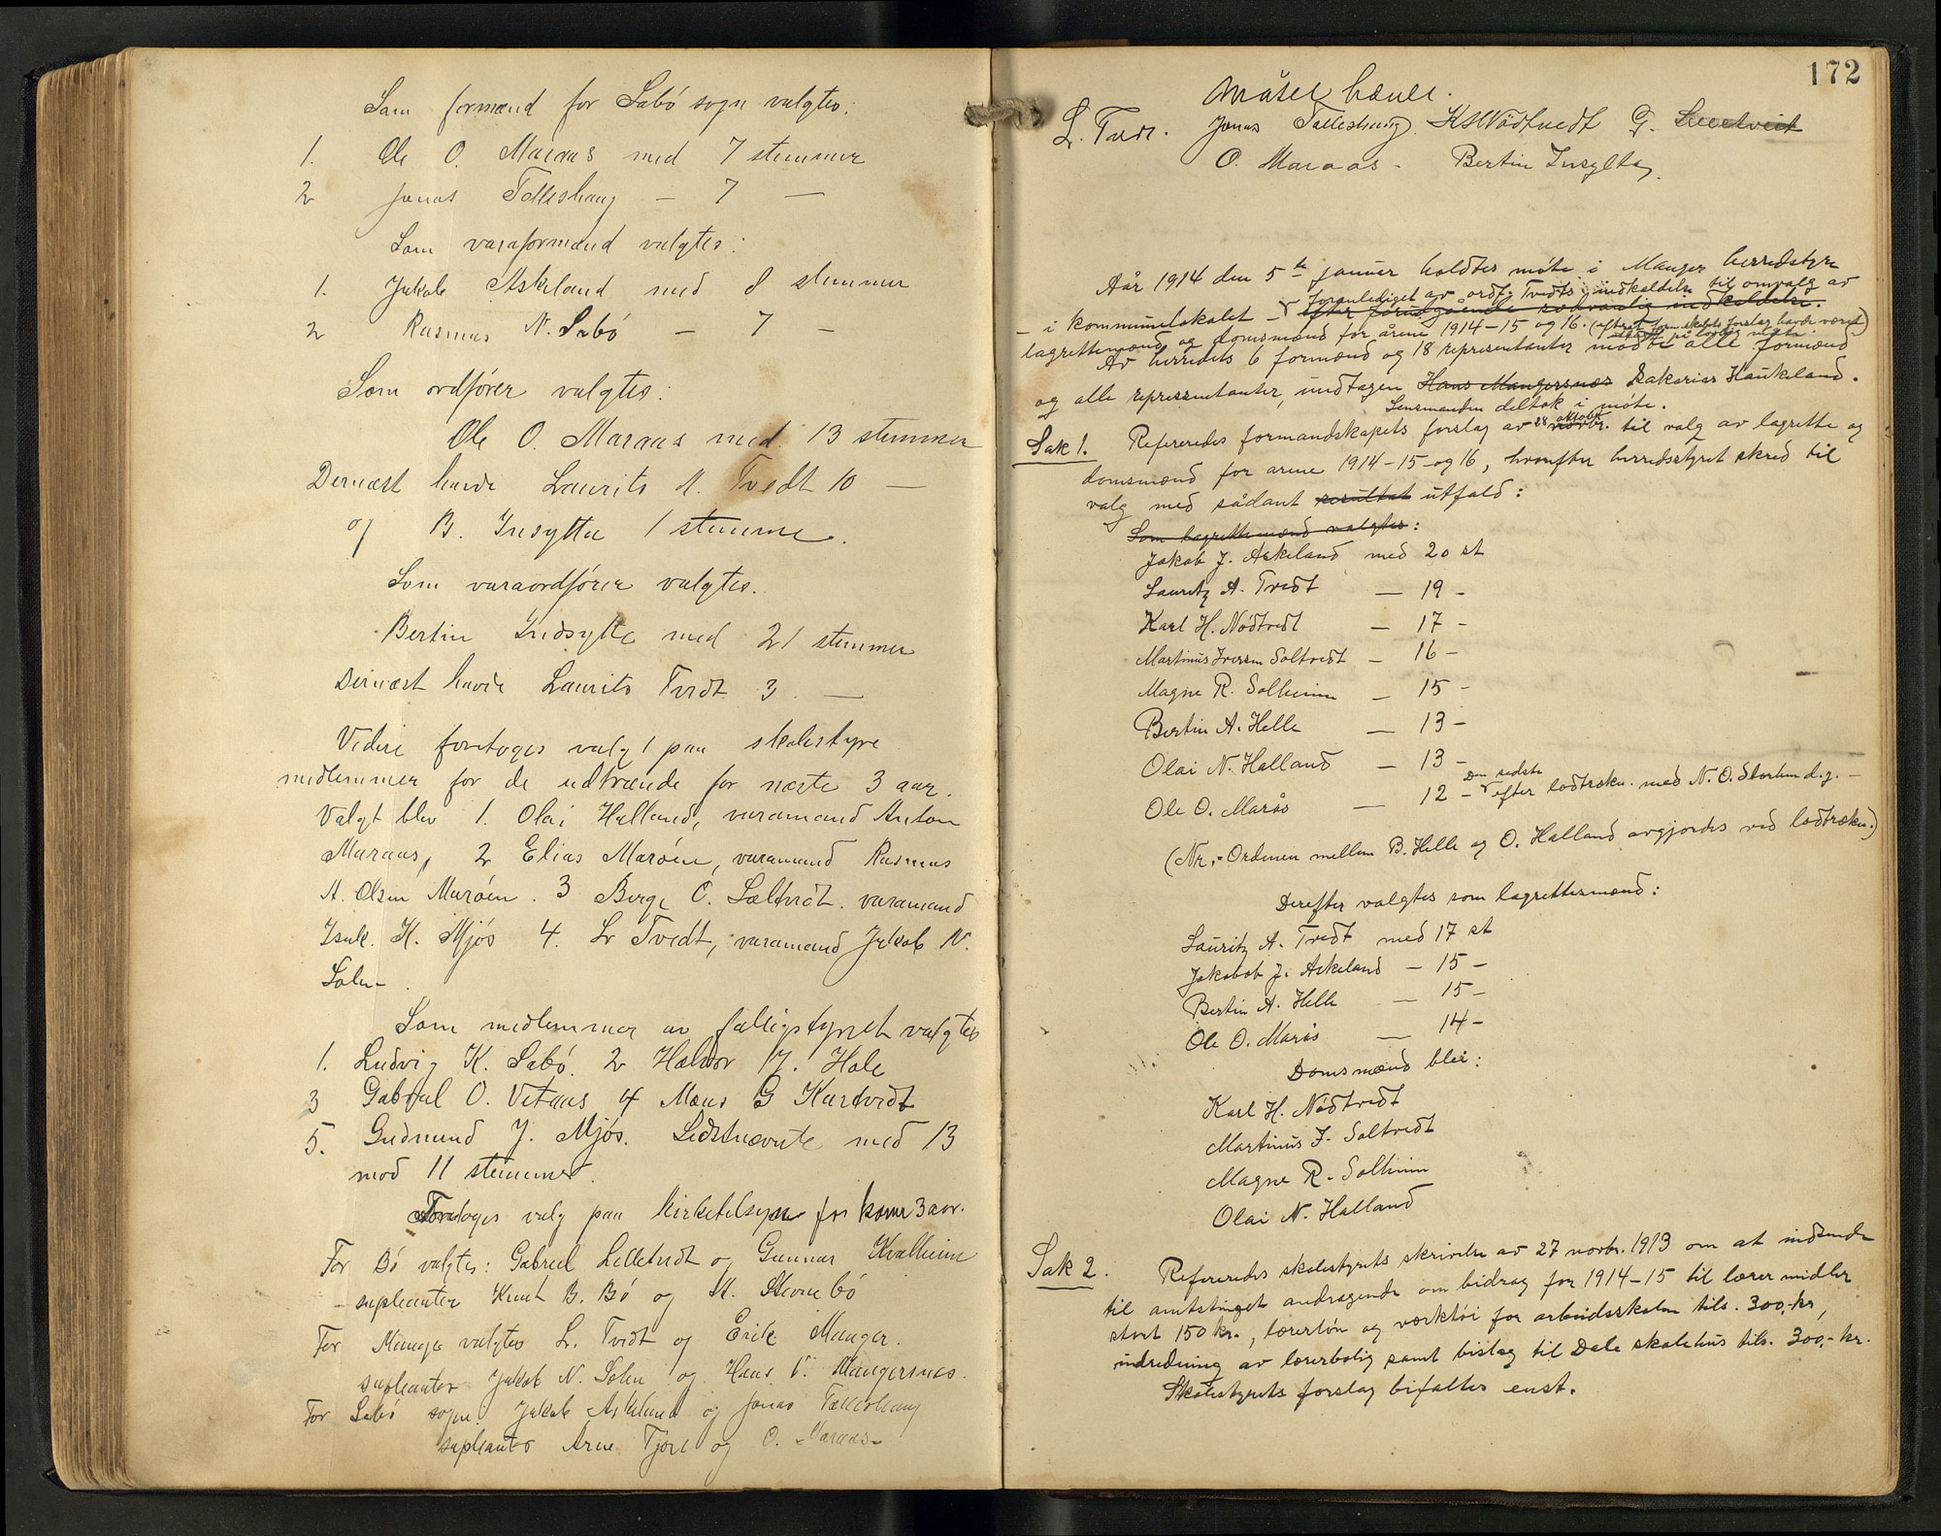 Som formænd for Sæbö sogn valgtes:
1. Ole O. Maraas med 7 stemmer
2 Jonas Tolleshaug — 7 —
Som varaformænd valgtes:
1. Jakob Askeland med 8 stemmer
2 Rasmus N. Sæbö — 7 —
Som ordfører valgtes:
Ole O. Maraas med 13 stemmer
Dernæst havde Laurits A. Tvedt 10 —
og B. Insylta 1 stemme.
Som varaordfører valgtes.
Bertin Indsylta med 21 stemmer
Dernæst havde Laurits Tvedt 3 —
Videre foretoges valg paa skolestyre
medlemmer for de udtrædende for næste 3 aar.
Valgt blev 1. Olai Halland, varamand Anton
Maraas, 2 Elias Maröen, varamand Rasmus
A. Olsen Maröen. 3 Berge O. Sæltvedt. varamand
Isak. K. Mjös 4. Lr Tvedt, varamand Jakob N.
Solen.
Som medlemmer av fattigstyret valgtes
1. Ludvig K. Sæbö. 2 Halvor M. Hole
3 Gabriel O. Vetaas 4 Mons G Kartvedt
5. Gudmund J. Mjös. Sidstnævnte med 13
mod 11 stemmer.
Foretoges valg paa kirketilsyn for komr 3 aar.
For Bö valgtes: Gabriel Lilletvedt og Gunnar Kvalheim
supleanter Knut B. Bö og A. Storebö
For Manger valgtes L. Tvedt og Erik Manger.
supleanter Jakob N. Solen og Hans V. Mangersnes.
For Sæbö sogn. Jakob Askeland og Jonas Tolleshaug
supleanter Arne Fjore og O. Maraas
172
Mötet hævet.
L. Tvedt. Jonas Tolleshaug. K H Nödtvedt G.
O. Maraas - Bertin Insylta.
Aar 1914 den 5te januar holdtes møte i Manger herredstyre
foranlediget av ordf. Tvedts indkaldelse til omvalg av
- i kommunelokalet - efter forutgående lovvarlig indkaldelse.
lagrettemænd og domsmænd for årene 1914-15 og 16. (efterat formskabets forslag havde været på lovlig måte)
Av herredets 6 formænd og 18 representanter mødte alle formænd
og alle representanter, undtagen Hans Mangersnes Sakarias Haukeland.
Lensmanden deltok i møte.
Sak 1. Refereredes formandskapets forslag av 28 oktobr. novbr. til valg av lagrette og
domsmænd for arene 1914-15-og 16, hvorefter herredsstyret skred til
valg med sådant resultat utfald:
Som lagrettemænd valgtes:
Jakob J. Askeland med 20 st
Lauritz A. Tvedt — 19 -
Karl H. Nödtvedt — 17 -
Martinus Iversen Soltvedt — 16 -
Magne R. Solheim — 15 -
Bertin A. Helle — 13 -
Olai N. Halland — 13 -
Ole O. Marås — 12 - Den sidste efter lodtrækn. med N. O. Storheim d.y. -
(Nr.-Ordenen mellem B. Helle og O. Halland avgjordes ved lodtrækn.)
Derefter valgtes som lagrettemænd:
Lauritz A. Tvedt med 17 st
Jakobob J. Askeland — 15 -
Bertin A. Helle — 15 -
Ole O. Marås — 14 -
Domsmænd blev:
Karl H. Nödtvedt
Martinus I. Soltvedt
Magne R. Solheim
Olai N. Halland
Sak 2. Refereredes skolestyrets skrivelse av 27 novbr. 1913 om at indsende
til amtstinget andragende om bidrag for 1914-15 til læremidler
stort 150 kr., lærerløn og værktöi for arbeidsskolen tils. 300,- kr,
indredning av lærerbolig samt bislag til Dale skolehus tils. 300,- kr.
Skolestyrets forslag bifaltes enst.